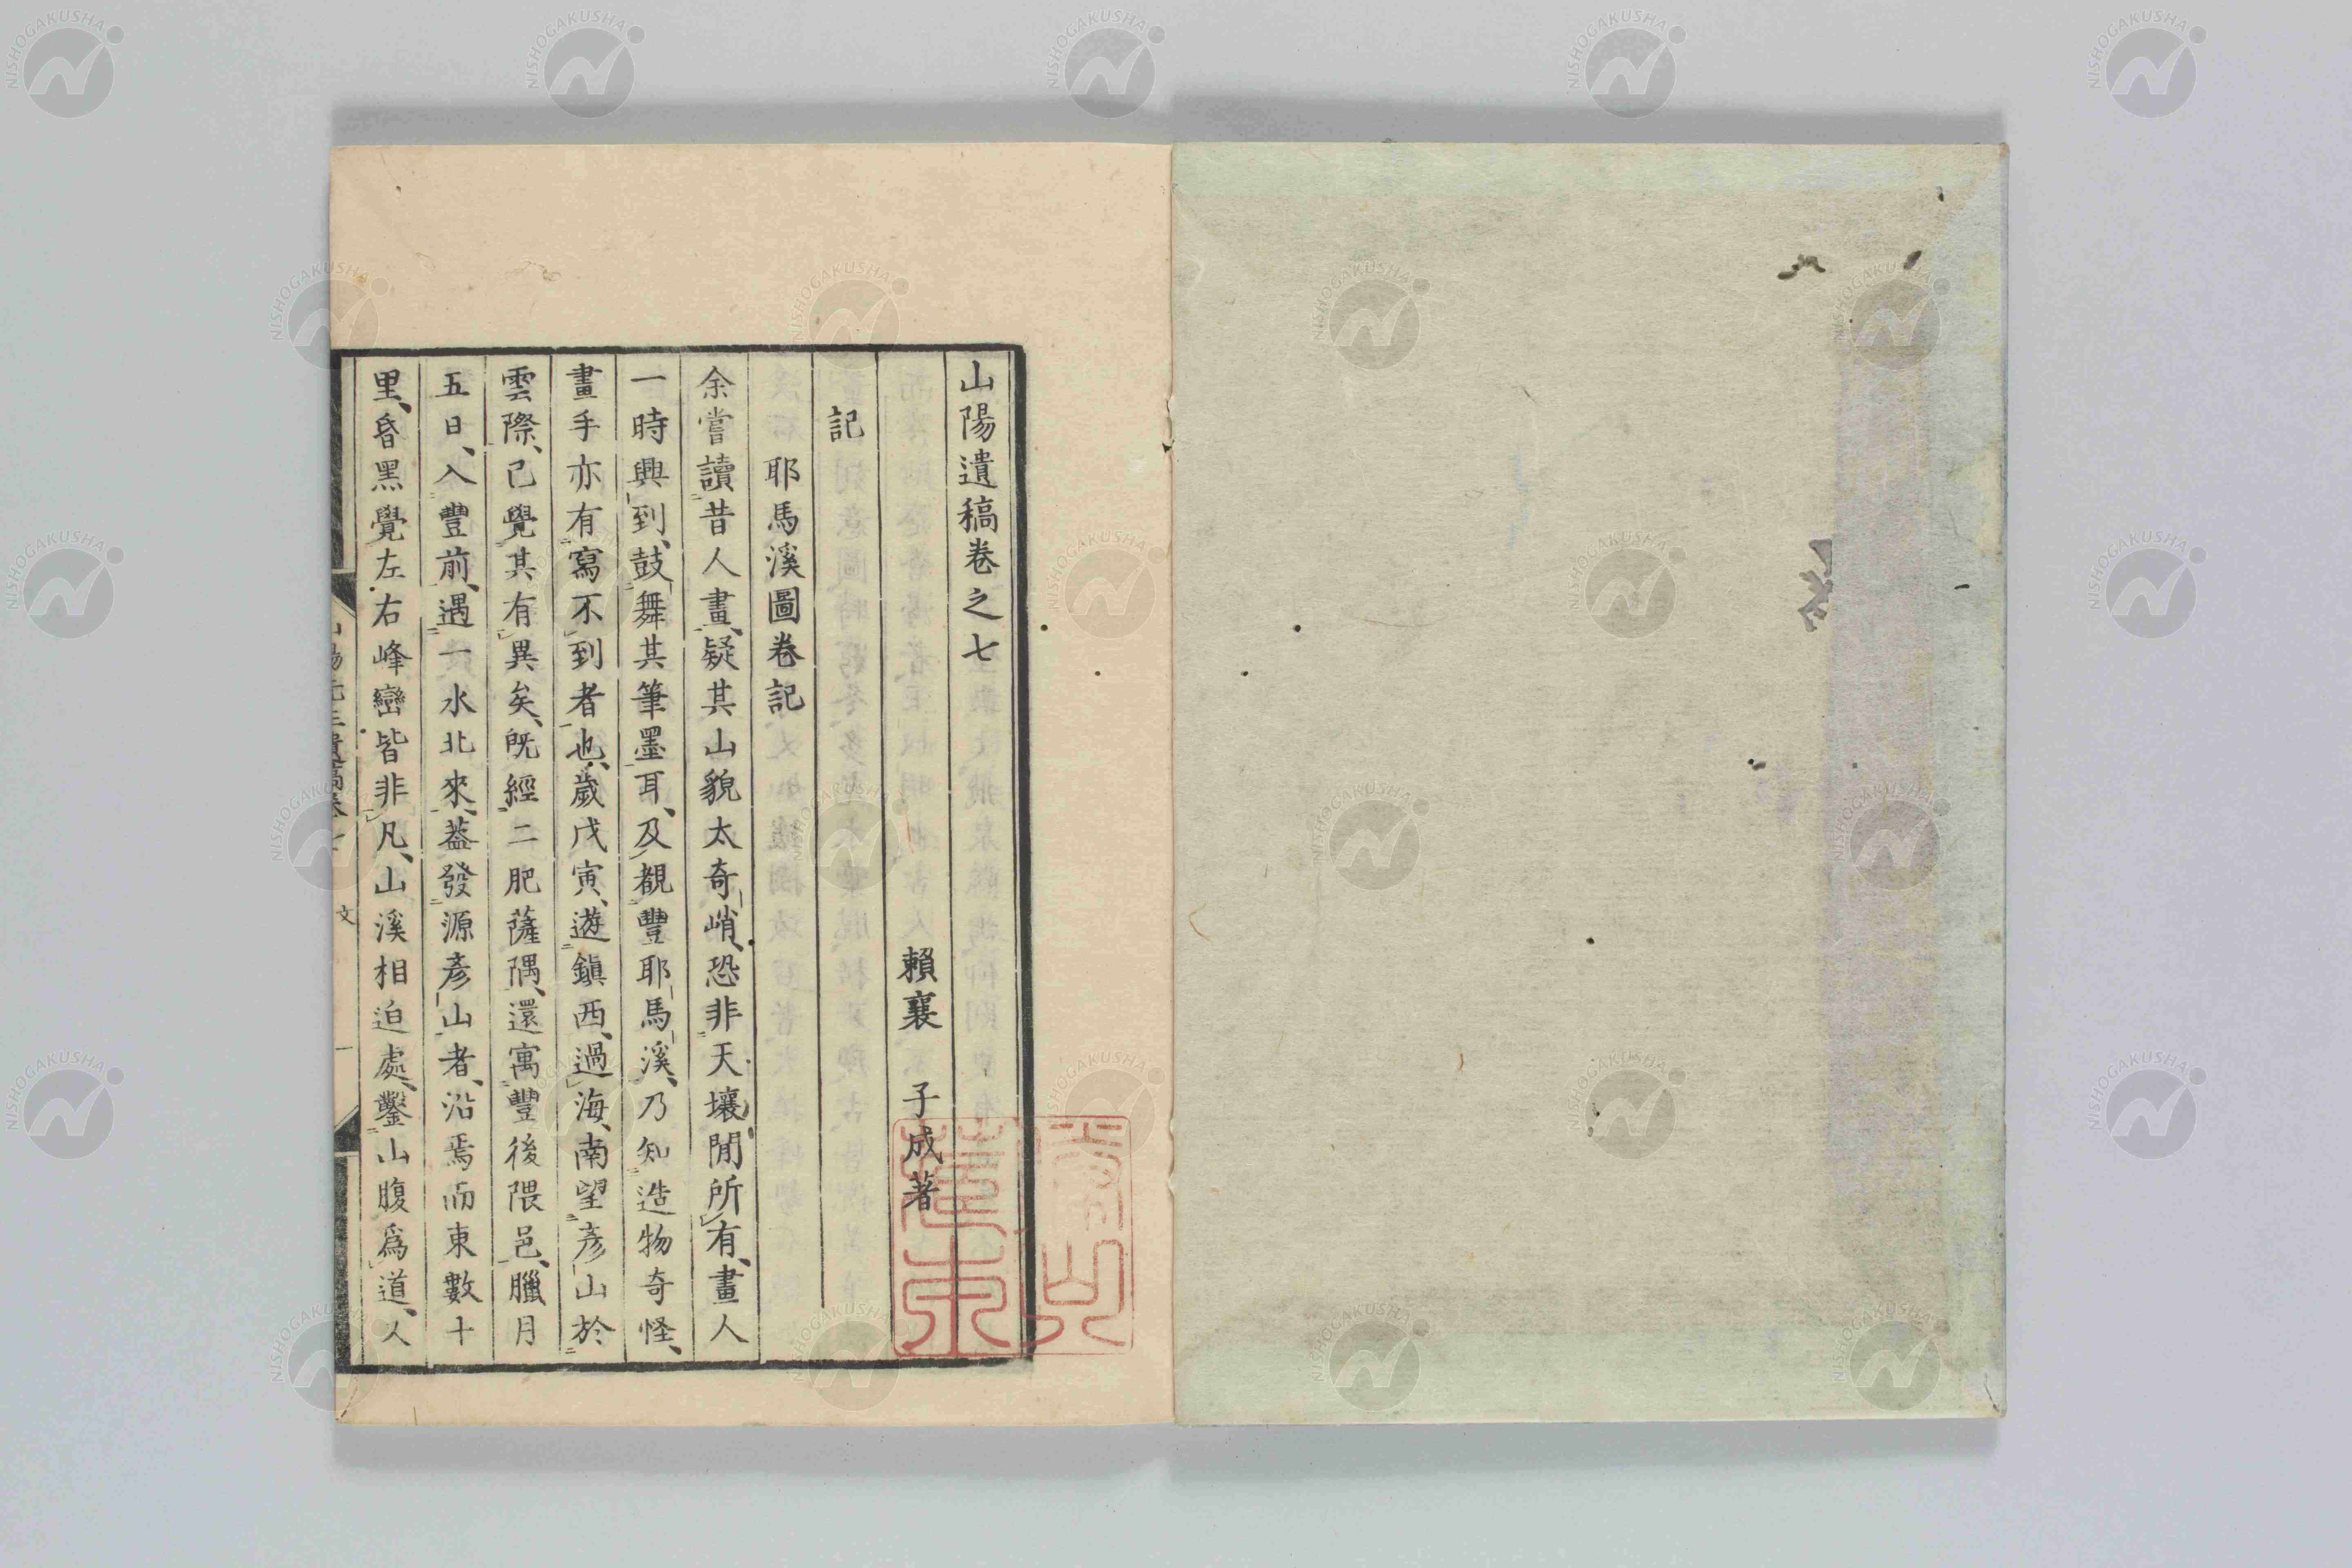 山陽遺稿卷之七
賴襄 子成著
記
耶馬溪圖卷記
余嘗讀昔人畫、疑其山貌太奇峭、恐非天壤閒所有、畫人
一時興到、鼓舞其筆墨耳、及觀豐耶馬溪、乃知造物奇怪、
畫手亦有寫不到者也、歲戊寅、遊鎭西、過海、南望彥山於
雲際、已覺其有異矣、旣經二肥薩隅、還寓豐後隈邑、臘月
五日、入豐前、遇一水北來、葢發源彥山者、沿焉而東數十
里、昏黑覺左右峰巒皆非凡、山溪相迫處、鑿山腹爲道、人
文
一
NISHOGAKUSHA